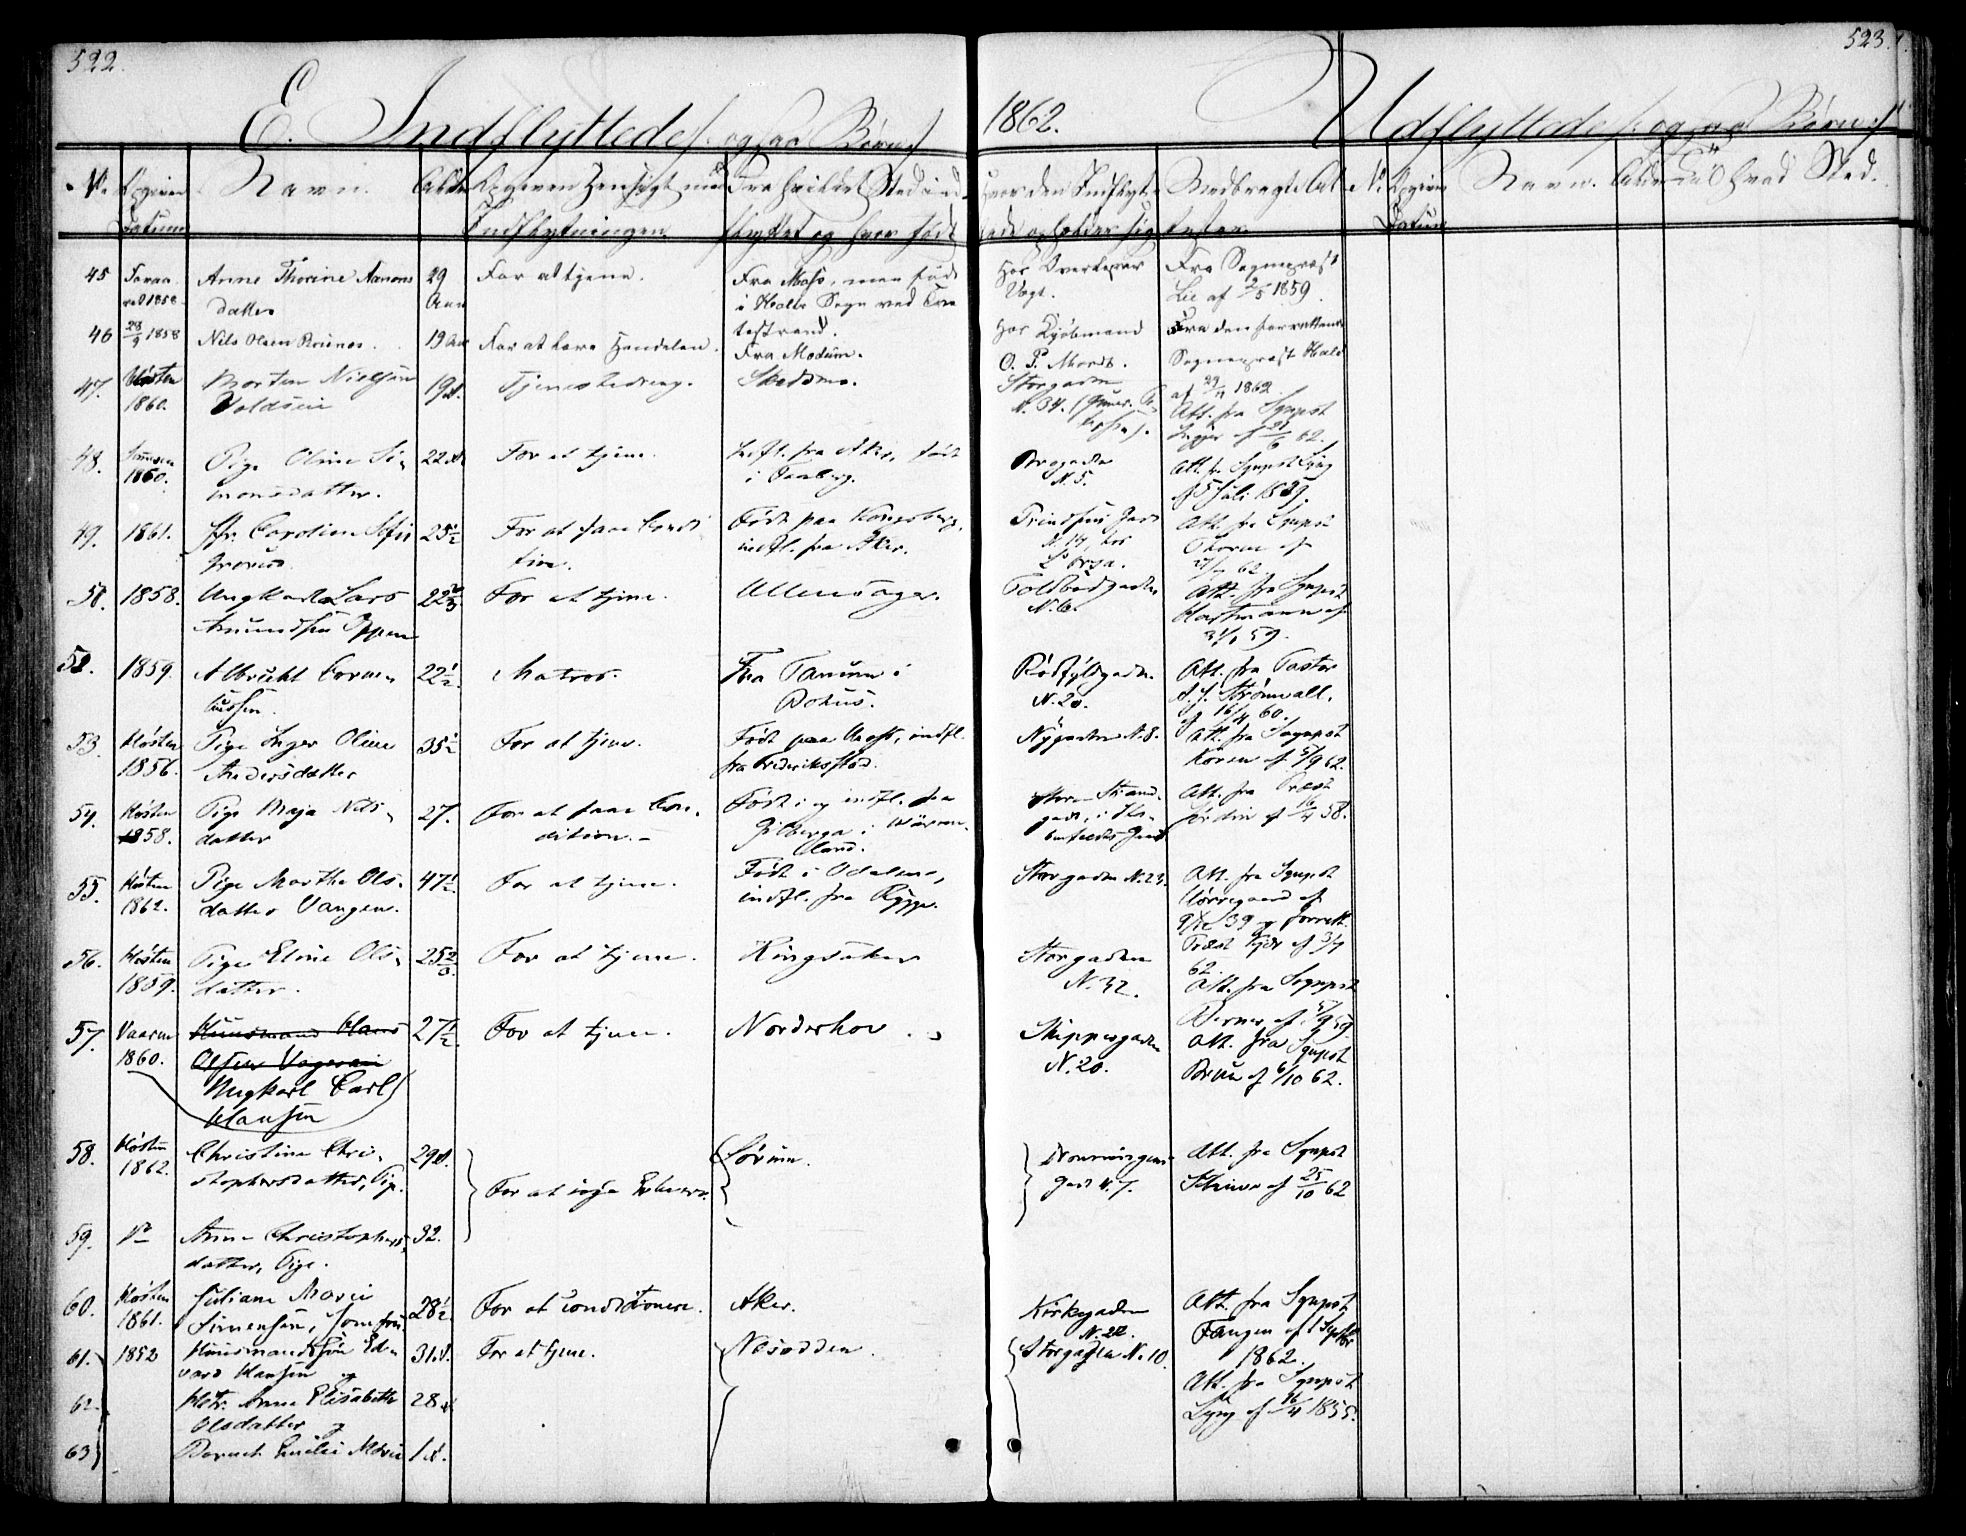 522.
523.
E. Indflyttede /: ogsaa Børn :/
1862.
Udflyttede /: ogsaa Børn :/
No Opgiven Datum
Navn.
Alder
Opgiven Hensigt med Indflytningen.
Fra hvilket Sted indflyttet og hvor født
Hvor den Indflyttede opholder sig
Medbragte Attester
No Opgiven Datum
Navn.
Alder
Til hvad Sted.
45 1858 Anne Thorine Aanonsdatter 29 Aar For at tjene. Fra Moss, men født i Holts Sogn ved Tvedestrand. Hos Overlærer Vogt. Fra Sogneprest Lie af 2/5 1859.
46 28/9 1858 Nils Olsen 19 Aar For at lære Handelen. Fra Modum. Hos Kjøbmand O. P. Moestue. Fra den forrettende Sogneprest Hald af 29/9 1862
47. Høsten 1860. Morten Nielsen Voldseie 19 A. Tjenestedreng. Skedsmo. Storgaden N. 34. Att. fra Sgnpst
48. Sommeren 1860. Pige Oline Simonsdatter. 22 A. For at tjene. Indfl. fra Aker, født i Faaberg. Brogaden N. 5. Att. fr. Sgnpst Lyng af 5 Juli 1859.
49. 1861. Jfr. Caroline Sofie 25 1/2 For at faae Condition. Født paa Kongsberg, indfl. fra Aker. N. 14, hos Att. fra Sgnpst 62
50. 1858. Ungkarl Lars Amundsen 22 2/3 For at tjene. Ullensager. Toldbodgaden N. 6. Att. fra Sgnpst Hartmann af 59.
52. 1859. Albrecht Cornelius​sen. 22 1/2. Matros. Fra Tanum i Bohus. Rødfyldgaden N. 20. Att. fra Pastor Strømvall, af 16/4 60.
53. Høsten 1856. Pige Inger Oline Andersdatter 35 1/2 For at tjene. Født paa Moss, indfl. fra Frederiksstad. Nygaden N. 8. Att. fra Sognpst Koren af 5/9 62.
54. Høsten 1858. Pige Maja Nilsdatter 27. For at faae Condition. – Født i og indfl. fra Gilberga i Wärmland. Store Strandgade, i Att. fra Præst af 16/4 58.
55. Høsten 1862. Pige Marthe Olsdatter Vangen. 47 1/2 For at tjene. Født i Odalen, indfl. fra Rygge. Storgaden N. 23. Att. fra Sgnpst Nørregaard af 9/12 39 og forrett. Præst af 3/7 62.
56. Høsten 1859. Pige Eline Olsdatter. 25 For at tjene. Ringsaker Storgaden N. 32. Att. fra Sognpst af 5/9 59.
57. Vaaren 1860. Huusmand Hans Olsen Ungkarl Carl Hansen 27 1/2 For at tjene. Norderhov. Skippergaden N. 20. Att. fra Sgnpst Bruu af 6/10 62.
58. Høsten 1862. Christine Christophersdatter, Pige. 29 A. For at søge Erhverv. Sørum. Gade N. 7. Att. fra Sgnpst af 25/10 62
59. Do Anne Christophersdatter, Pige. 32.
60. Høsten 1861. Juliane Marie Simensen, Jomfru 28 1/2 For at conditionere. Aker. Kirkegaden N. 22. Att. fra Sgnpst Fangen af 1 Septbr 1862.
61. 1852 Huusmandssøn Edvard Hansen og 31 A. For at tjene. Nesodden. Storgaden N. 10. Att. fra Sgnpst Lyng af 16/4 1855.
62. Hstr. Anne Elisabeth Olsdatter og 28 A.
63 Barnet Emilie Marie 1 A.